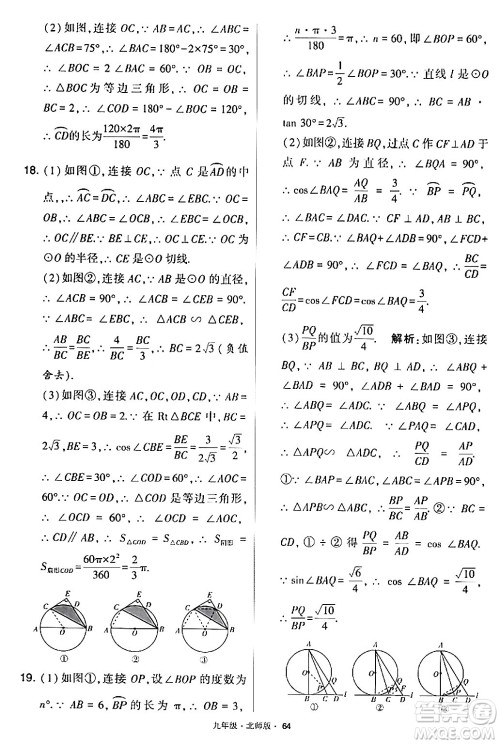 (2)如图②,连接 OC,∵ ∠ACE=∠ACB,
∴ ∠ACB=75°,∴ ∠BAC=180°-2×75°=
30°,∴ ∠BOC=2∠BAC=60°.∵ OB=OC,
∴ △BOC 为等边三角形,∴ ∠OCB=∠OBC=
60°,∴ ∠COD=180°-∠BOC=120°,
∴ CD的长为120×2π/180=4π/3.
18. (1)如图①,连接 OC,∵ 点 C 是AD的中
点,∴ AC=DC,∴ ∠ABC=∠EBC.∵ OB=
OC,∴ ∠ABC=∠OCB,∴ ∠EBC=∠OCB,
∴ OC∥BE.∵ BE⊥CE,∴ OC⊥CE.∵ OC为
⊙O 的半径,∴ CE 是⊙O 的切线.
(2)如图②,连接 AC,∵ AB 是⊙O 的直径,
∴ ∠ACB=90°,∴ ∠ACB=∠CEB=90°.
∵ ∠ABC=∠EBC,∴ △ACB∽△CEB,
∴ AB/BC=BC/BE,∴ 4/BC=BC/3,∴ BC=2√3(负值
舍去).
(3)如图③,连接 AC,OC,OD,CD,∵ AB=4,
∴ OC=OB=2.∵ 在 Rt△BCE 中,BC=
2√3,BE=3,∴ cos∠CBE=BE/BC=3/2√3=√3/2,
∴ ∠CBE=30°,∴ ∠COD=60°,∴ ∠AOC=
60°.∵ OC=OD,∴ △COD 是等边三角形,
∴ ∠CDO=60°,∴ ∠CDO=∠AOC,
∴ CD∥AB,∴ S△COD=S△CBD,∴ S阴影=
S扇形COD=60π×2²/360=2π/3.
① ② ③
19. (1)如图①,连接 OP,设∠BOP 的度数为
n°,∵ AB=6,BP的长为π,∴ OB=OA=3,
∴ n·π·3/180=π,∴ n=60,即∠BOP=60°,
∴ ∠BAP=1/2∠BOP=30°.∵ 直线 l 是⊙O
的切线,∴ ∠ABC=90°,∴ BC=AB·
tan 30°=2√3.
(2)如图②,连接 BQ,过点 C 作 CF⊥AD
于点 F,∵ AB 为⊙O 的直径,∴ ∠BQA=
90°,∴ cos∠BAQ=AQ/AB=3/4.∵ BP=PQ,
∴ ∠BAC=∠DAC.∵ CF⊥AD,AB⊥BC,
∴ CF=BC.∵ ∠BAQ+∠ADB=90°,∠FCD+
∠ADB=90°,∴ ∠FCD=∠BAQ,∴ BC/CD=
CF/CD=cos∠FCD=cos∠BAQ=3/4.
(3)PQ/BP的值为√10/4. 解析:如图③,连接
BQ,∵ AB⊥BC,BQ⊥AD,∴ ∠ABQ=
90°-∠QBD=∠ADC.∵ ∠ABQ=∠APQ,
∴ ∠APQ=∠ADC.∵ ∠PAQ=∠CAD,
∴ △APQ∽△ADC,∴ PQ/CD=AP/AD①.∵ ∠ABC=
90°=∠APB,∠BAC=∠PAB,
∴ △APB∽△ABC,∴ BP/BC=AP/AB②.由①÷②
得
九年级·北师版·64